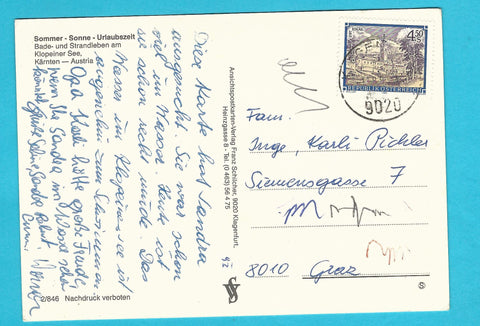 Sommer - Sonne - Urlaubszeit
Bade- und Strandleben am
Klopeiner See,
Kärnten — Austria
Diese Karte hat Sandra
ausgesucht. Sie war schon
viel im Wasser. Heute ist
sie schon recht müde. Das
Wasser im Klopeinersee ist
angenehm zum Schwimmen
Opa Hadi hätte große Freude,
wenn Sandra im Wasser
2/846 Nachdruck verboten
Ansichtspostkarten-Verlag Franz Schilcher, 9020 Klagenfurt,
Heinzgasse 7, Tel. (0 463) 56 4 75
4.50
REPUBLIK ÖSTERREICH
9020
Fam.
Inge, Karli Pichler
Siemensgasse 7
8010 Graz
S